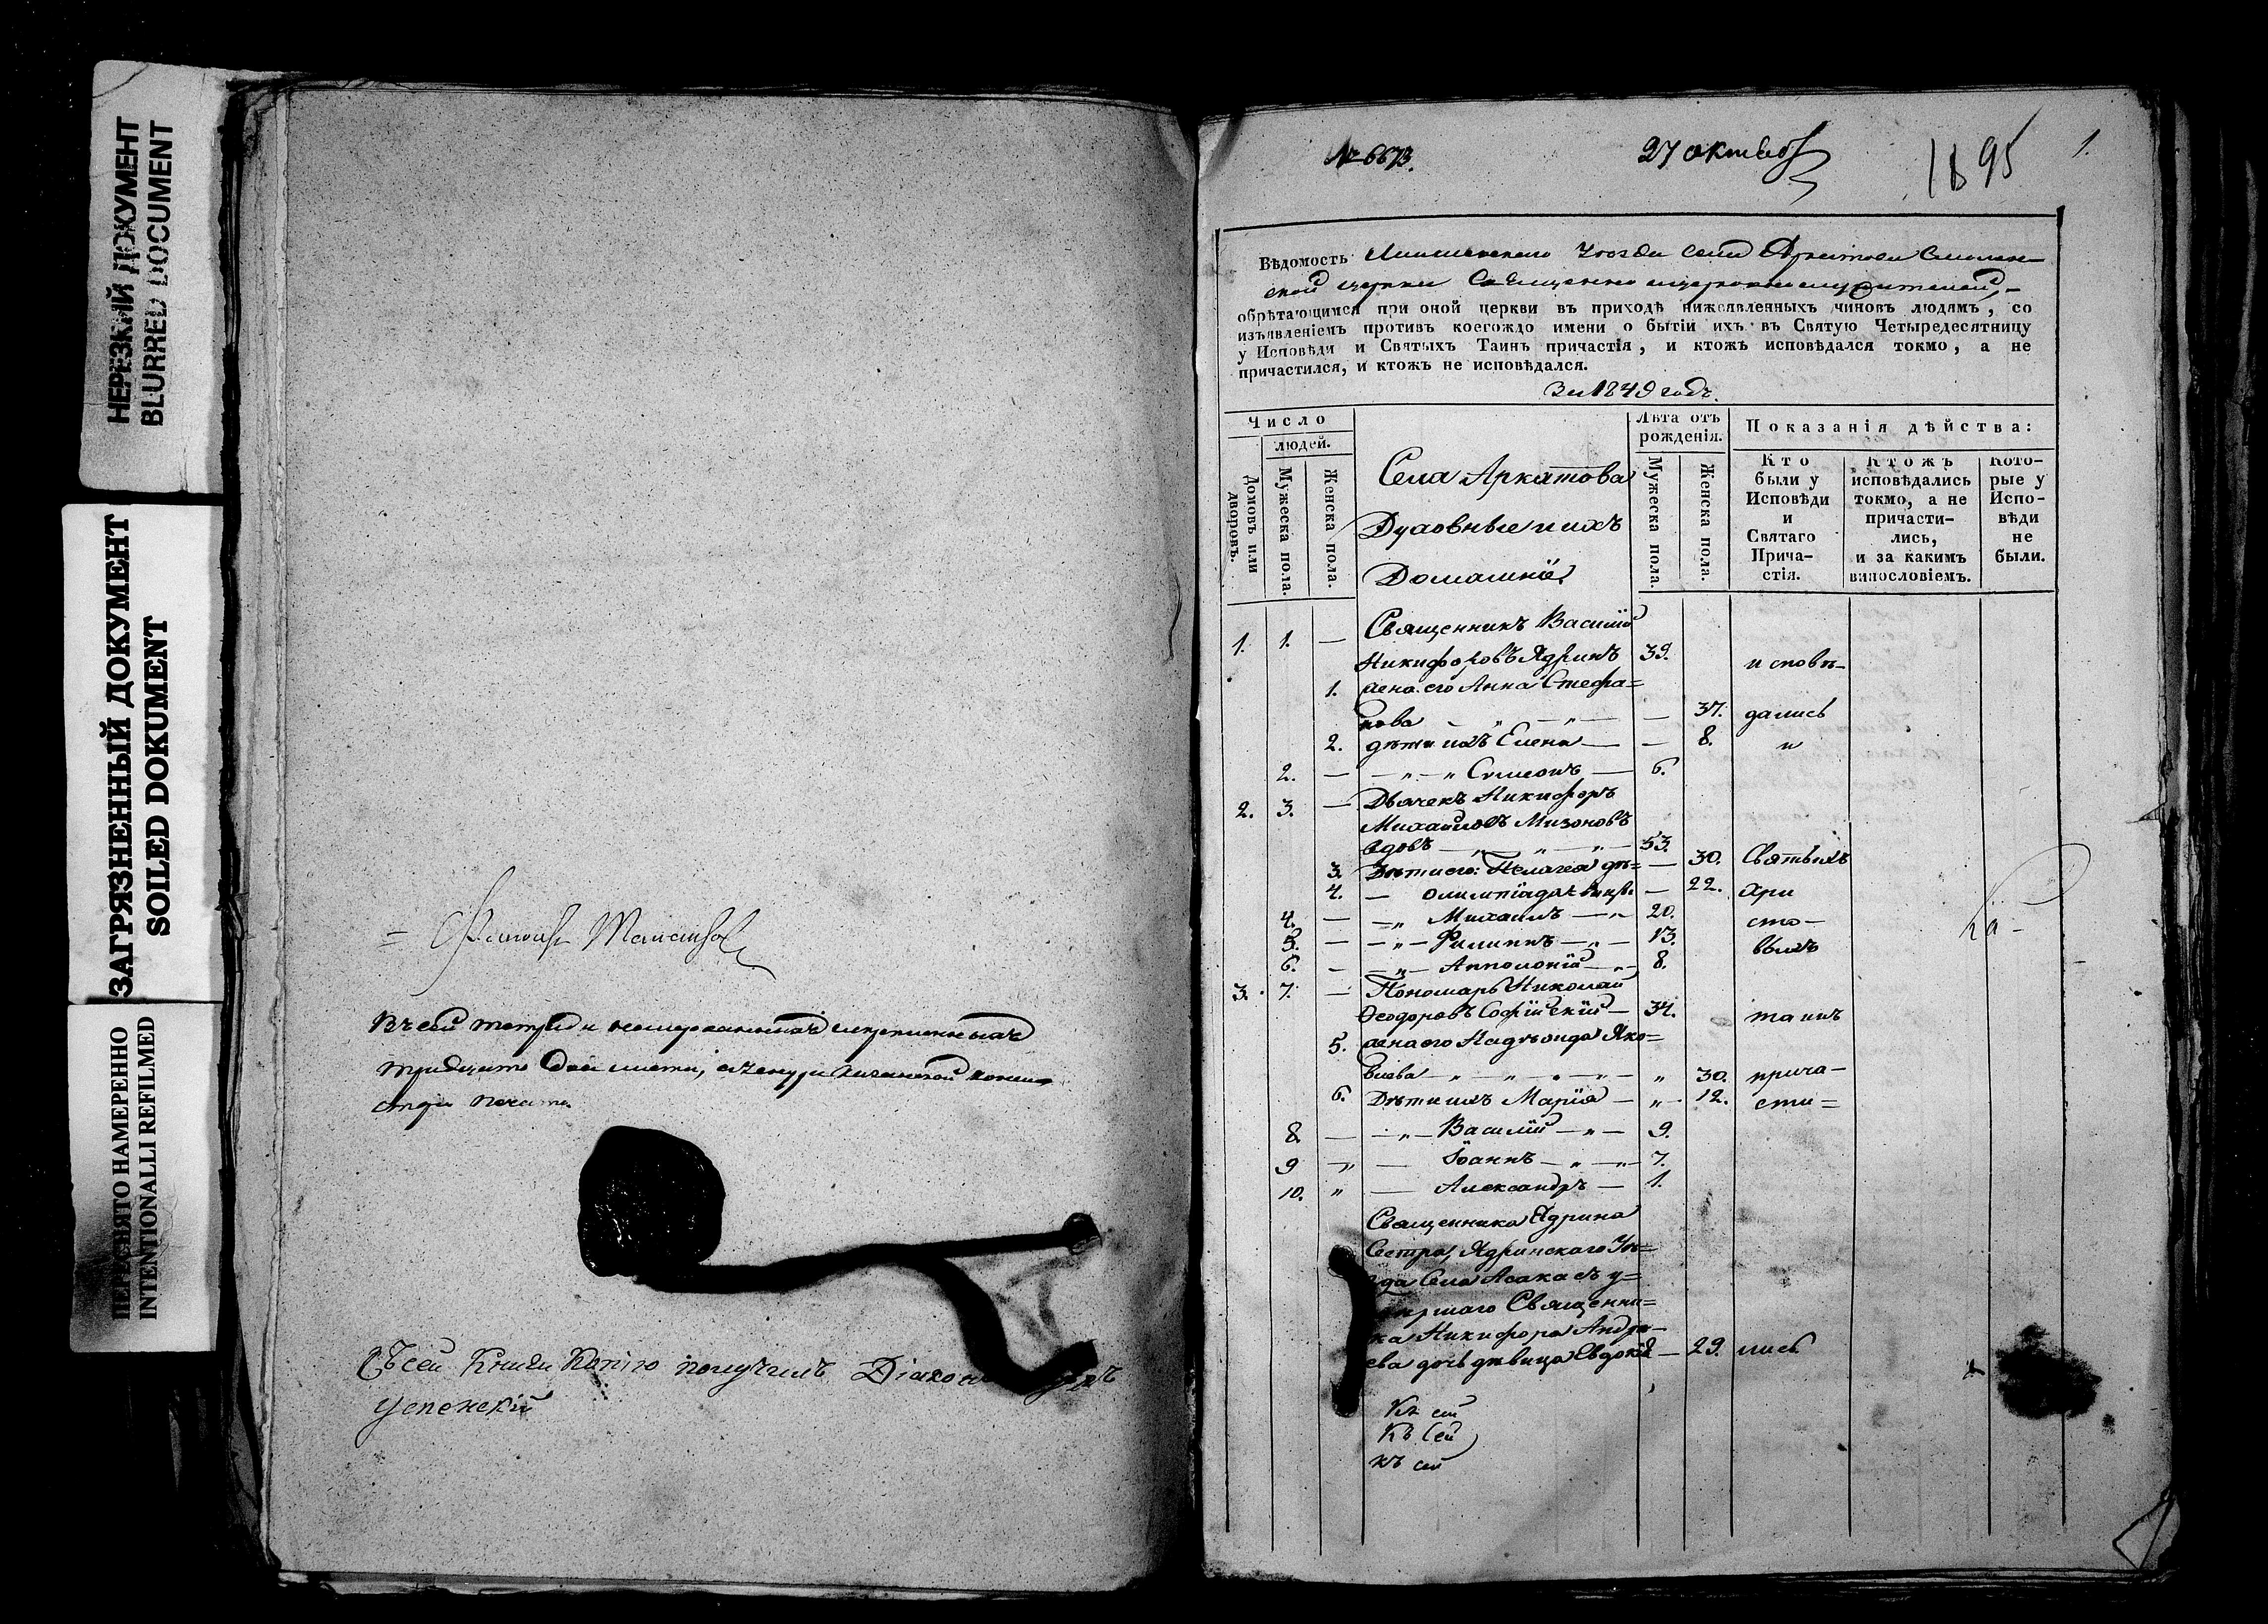 НЕРЕЗКИЙ ДОКУМЕНТ
BLURRED DOCUMENT
ЗАГРЯЗНЕННЫЙ ДОКУМЕНТ
SOILED DOKUMENT
ПЕРЕСНЯТО НАМЕРЕННО
INTENTIONALLI REFILMED
Въ сей тетради
тридцать листа,
печати.
Съ сей Книги Копію получилъ Діаконъ
Успенскій
№ 6673.
27 октяб
1895
1.
Вѣдомость Уѣзда села Смолен-
ской церкви Священно
обрѣтающимся при оной церкви въ приходѣ нижеявленныхъ чиновъ людямъ, со
изъявленіемъ противъ коегождо имени о бытіи ихъ въ Святую Четыредесятницу
у Исповѣди и Святыхъ Таинъ причастія, и ктожъ исповѣдался токмо, а не
причастился, и ктожъ не исповѣдался.
За 1849 годъ.
Число
людей.
Домовъ или дворовъ.
Мужеска пола.
Женска пола.
Села Аркатова
Духовные и ихъ
Домашніе
Лѣта отъ
рожденія.
Мужеска пола.
Женска пола.
Показанія дѣйства:
Кто
были у
Исповѣди
и
Святаго
Прича-
стія.
Ктожъ
исповѣдались
токмо, а не
причасти-
лись,
и за какимъ
винословіемъ.
Кото-
рые у
Испо-
вѣди
не
были.
1. 1. — Священникъ Василій
Никифоровъ Ядринъ 39. исповѣ-
1. жена его Анна Стефа=
нова — „ — „ — — 37. дались
2. дѣти ихъ Елена — — 8. и
2. — — „ — „ Симеонъ — 6.
2. 3. — Дьячекъ Никифоръ
Михайловъ Мизоновъ
вдовъ — „ — „ — „ — 53.
3. Дѣти его: Пелагея дѣ= — 30. Святыхъ
4. — Олимпіада — 22. Хри
4. — — „ Михаилъ — „ 20. сто-
5. — — „ — Филиппъ — „ — 13. выхъ
6. — — „ — Апполоній — „ — 8.
3. 7. — Пономарь Николай
Ѳеодоровъ Софійскій — 34. таинъ
5. жена его Надѣжда Яко=
влева — „ — „ — „ — „ — „ 30. прича-
6. Дѣти ихъ Марія — „ — 12. сти=
8. — — „ — Василій — „ — 9.
9 — „ — Іоаннъ — „ — „ — 7.
10. „ — Александръ — 1.
Священника Ядрина
Сестра, Ядринскаго Уѣ=
зда Села Асакасъ у=
мершаго Священни=
ка Никифора Андре-
ева дочь дѣвица Евдокія — 29. лись
Къ сей
Къ Сей
къ сей